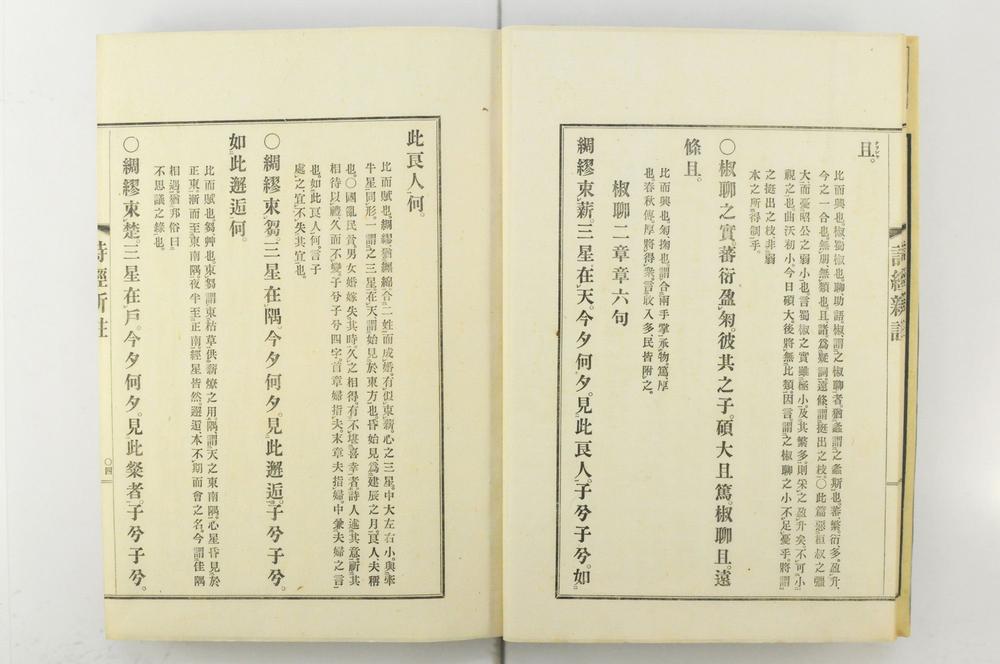 且。
比而興也。椒蜀椒也。聊助語。椒謂之椒聊者、猶螽謂之螽斯也。蕃繁。衍多。盈升、
今之一合也。無朋無類也。且諸爲疑詞。遠條謂挺出之枝。〇此篇惡桓叔之彊
大、而憂昭公之弱小也。言蜀椒之實雖極小、及其繁多、則采之盈升矣。不可小
視之也。曲沃初小、今日碩大後將無比類。因言謂之椒聊之小不足憂乎。將謂
之挺出之枝非弱
本之所得制乎。
〇椒聊之實。蕃衍盈匊。彼其之子。碩大且篤。椒聊且。遠
條且。
比而興也。匊掬也。謂合兩手掌承物。篤厚
也。春秋傳、厚將得衆。言收入多民皆附之。
椒聊二章章六句
綢繆束薪。三星在天。今夕何夕。見此良人。子兮子兮。如
此良人何。
比而賦也。綢繆猶纏綿。合二姓而成婚、有似束薪。心之三星、中大左右小。與牽
牛星同形。一謂之三星。在天謂始見於東方也。昏始見爲建辰之月。良人夫稱
也。〇國亂民貧、男女婚嫁失其時。久之相得、有不堪喜幸者。詩人述其意、祈其
相待以禮、久而不變。子兮子兮四字、首章婦指夫、末章夫指婦、中兼夫婦之言
也。如此良人何、言子
處之宜不失其宜也。
〇綢繆束芻。三星在隅。今夕何夕。見此邂逅。子兮子兮。
如此邂逅何。
比而賦也。芻艸也。束芻謂束枯草供薪燎之用。隅謂天之東南隅。心星昏見於
正東、漸而至東南隅、夜半至正南。經星皆然。邂逅、本不期而會之名。今謂佳隅
相遇。猶邦俗曰
不思議之緣也。
〇綢繆束楚。三星在戶。今夕何夕。見此粲者。子兮子兮。
詩經新註
〇四
詩經新註